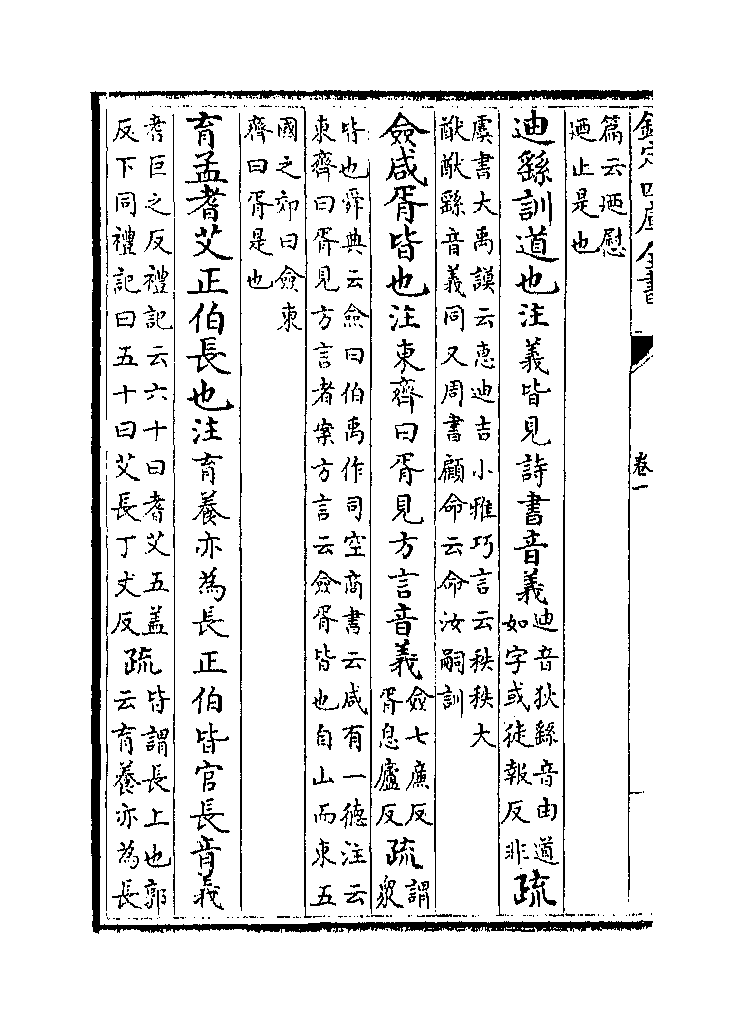 欽定四庫全書
卷一
篇云迺慰
迺止是也
迪繇訓道也注義皆見詩書音義
迪音狄繇音由道
如字或徒報反非
疏
虞書大禹謨云惠迪吉小雅巧言云秩秩大
猷猷繇音義同又周書顧命云命汝嗣訓
僉咸胥皆也注東齊曰胥見方言音義
僉七廉反
胥息廬反
疏
謂
衆
皆也舜典云僉曰伯禹作司空商書云咸有一德注云
東齊曰胥見方言者案方言云僉胥皆也自山而東五
國之郊曰僉東
齊曰胥是也
育孟耆艾正伯長也注育養亦為長正伯皆官長音義
耆巨之反禮記云六十曰耆艾五蓋
反下同禮記曰五十曰艾長丁丈反
疏
皆謂長上也郭
云育養亦為長